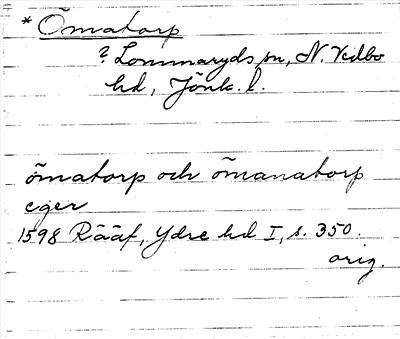 * Ömatorp
? Lommaryds sn, N. Vedbo
hd, Jönk. l.
ömatorp och ömanatorp
eger
1598 Rääf, Ydre hd I, s. 350.
orig.